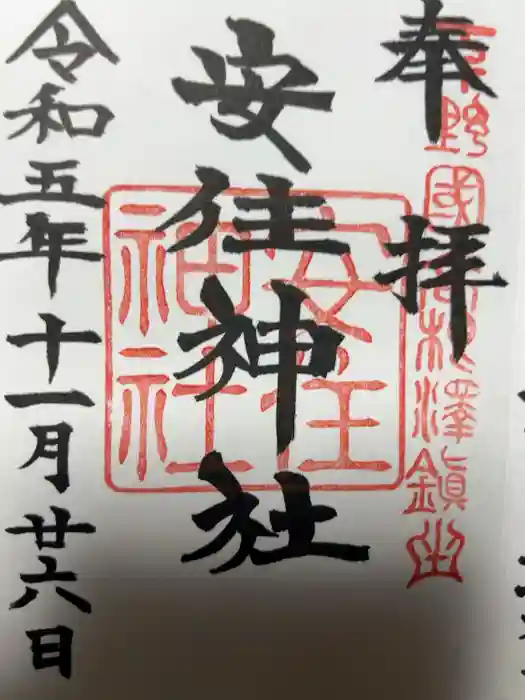 奉拝
安住神社
令和五年十一月廿六日
安住
神社